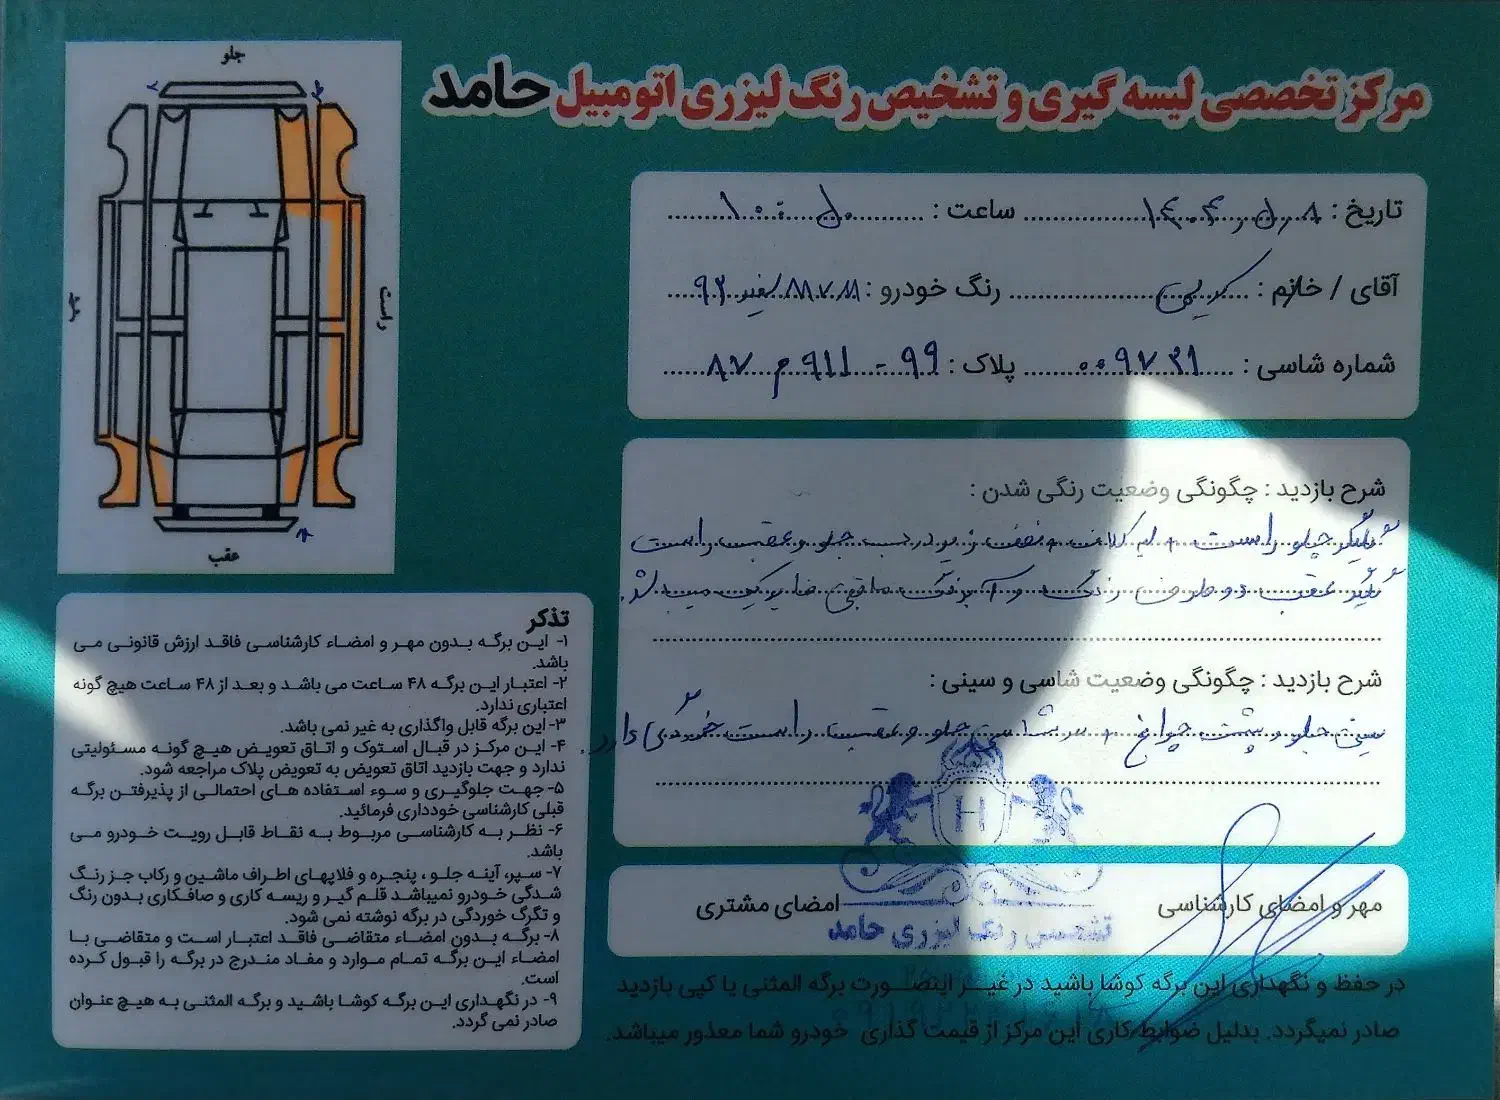 مرکز تخصصی لیسه گیری و تشخیص رنگ لیزری اتومبیل حامد
جلو
راست
چپ
عقب
تاریخ : ۱۴۰۴٫۵٫۸ ساعت : ۱۰:۵۰
آقای / خانم : کریمی رنگ خودرو : سفید ۹۳
شماره شاسی : ۰۰۹۷۳۱ پلاک : ۹۹ - ۹۱۱ م ۸۷
شرح بازدید : چگونگی وضعیت رنگی شدن :
گلگیر جلو راست + لبه کاپوت + نصف زیر درب جلو و عقب راست
گلگیر عقب دو طرف رنگ و آبرنگ مابقی فابریک میباشد.
شرح بازدید : چگونگی وضعیت شاسی و سینی :
سینی جلو و پشت چراغ + سر شاسی جلو و عقب راست خوردگی دارد.
H
تشخیص رنگ لیزری حامد
مهر و امضای کارشناسی
امضای مشتری
در حفظ و نگهداری این برگه کوشا باشید در غیر اینصورت برگه المثنی یا کپی بازدید
صادر نمیگردد. بدلیل ضوابط کاری این مرکز از قیمت گذاری خودرو شما معذور میباشد.
تذکر
۱- این برگه بدون مهر و امضاء کارشناسی فاقد ارزش قانونی می
باشد.
۲- اعتبار این برگه ۴۸ ساعت می باشد و بعد از ۴۸ ساعت هیچ گونه
اعتباری ندارد.
۳- این برگه قابل واگذاری به غیر نمی باشد.
۴- این مرکز در قبال استوک و اتاق تعویض هیچ گونه مسئولیتی
ندارد و جهت بازدید اتاق تعویض به تعویض پلاک مراجعه شود.
۵- جهت جلوگیری و سوء استفاده های احتمالی از پذیرفتن برگه
قبلی کارشناسی خودداری فرمائید.
۶- نظر به کارشناسی مربوط به نقاط قابل رویت خودرو می
باشد.
۷- سپر، آینه جلو ، پنجره و فلاپهای اطراف ماشین و رکاب جز رنگ
شدگی خودرو نمیباشد قلم گیر و ریسه کاری و صافکاری بدون رنگ
و تگرگ خوردگی در برگه نوشته نمی شود.
۸- برگه بدون امضاء متقاضی فاقد اعتبار است و متقاضی با
امضاء این برگه تمام موارد و مفاد مندرج در برگه را قبول کرده
است.
۹- در نگهداری این برگه کوشا باشید و برگه المثنی به هیچ عنوان
صادر نمی گردد.